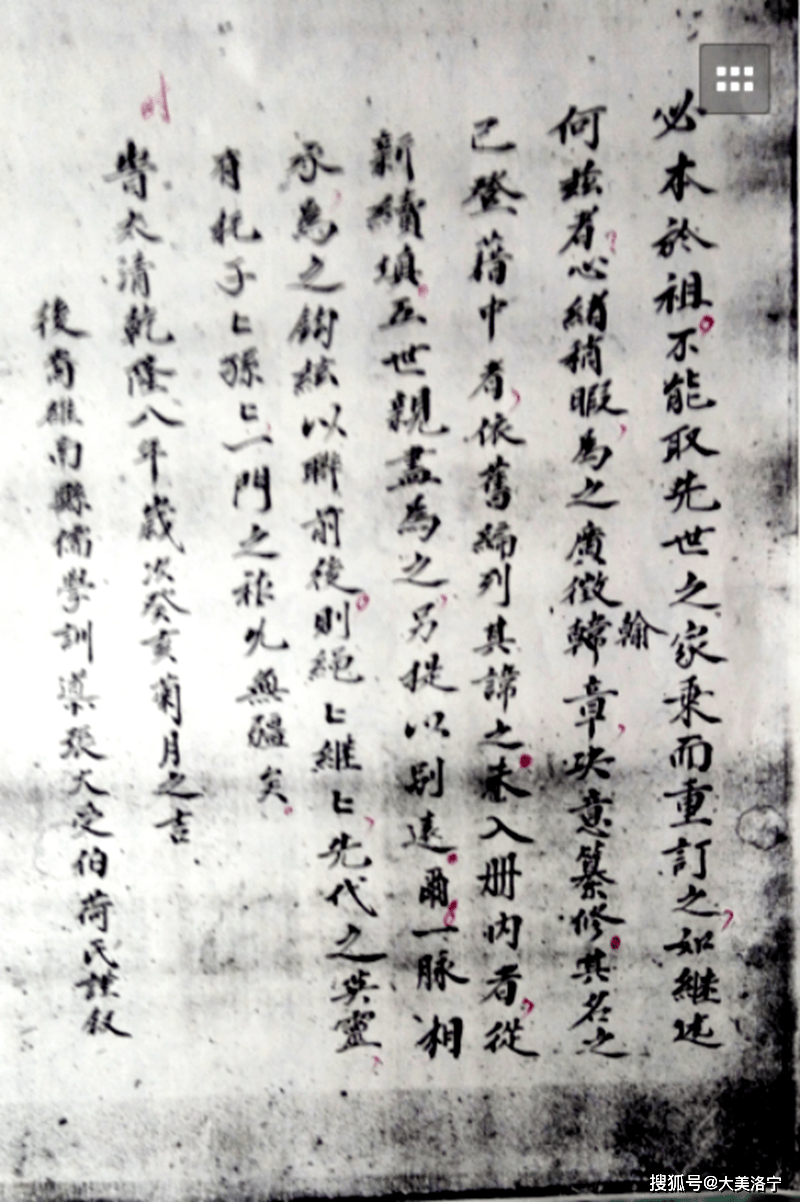 必本於祖。不能取先世之家乘而重訂之，如繼述
何玆者，心緒稍暇，為之廣徵韓翰章，決意纂修。其名之
已登藉中者，依舊編列其諱之。未入册內者，從
新續填。五世親盡為之，另提以別遠。爾一脉相
承為之鈎絃以聯前後。則繩〻繼〻，先代之英靈
有托子〻孫〻一門之祚允無疆矣。
時
旹大清乾隆八年歲次癸亥菊月之吉
後裔雄南縣儒學訓導張大受伯荷氏謹叙
搜狐号@大美洛宁